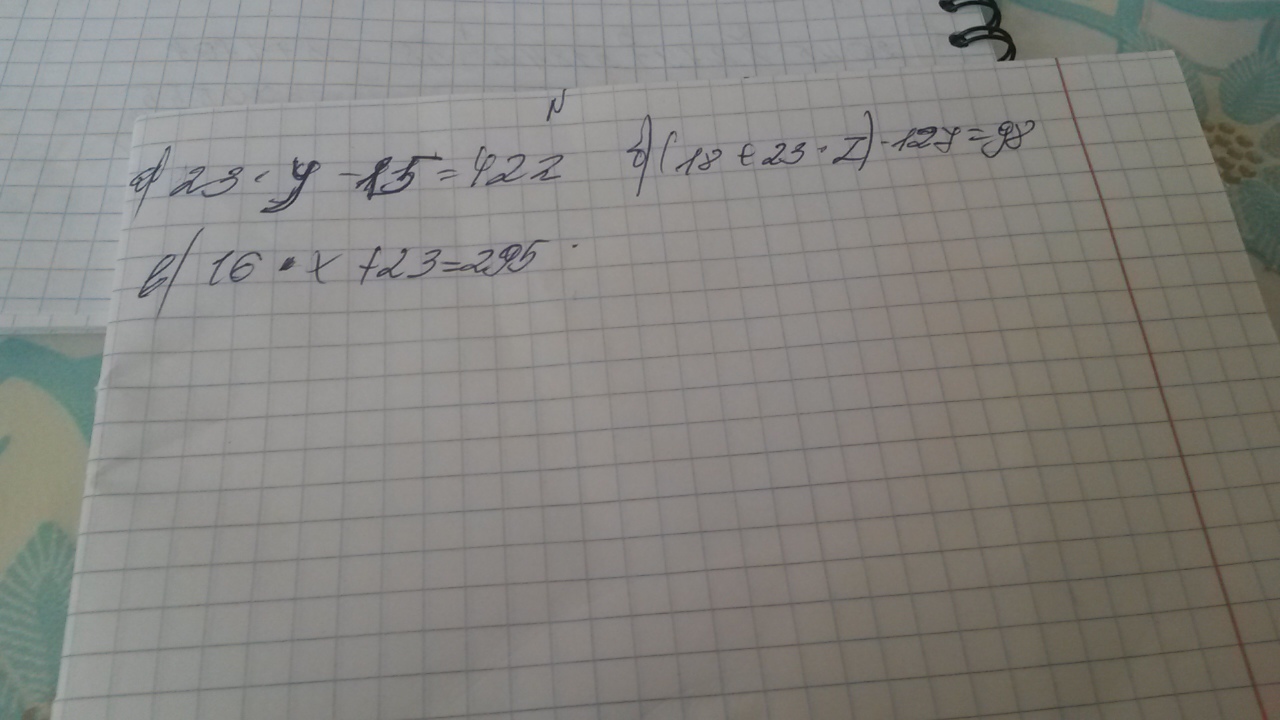 N
а) 23 · y - 15 = 422 б) (18 + 23 · Z) - 127 = 98
в) 16 · x + 23 = 295